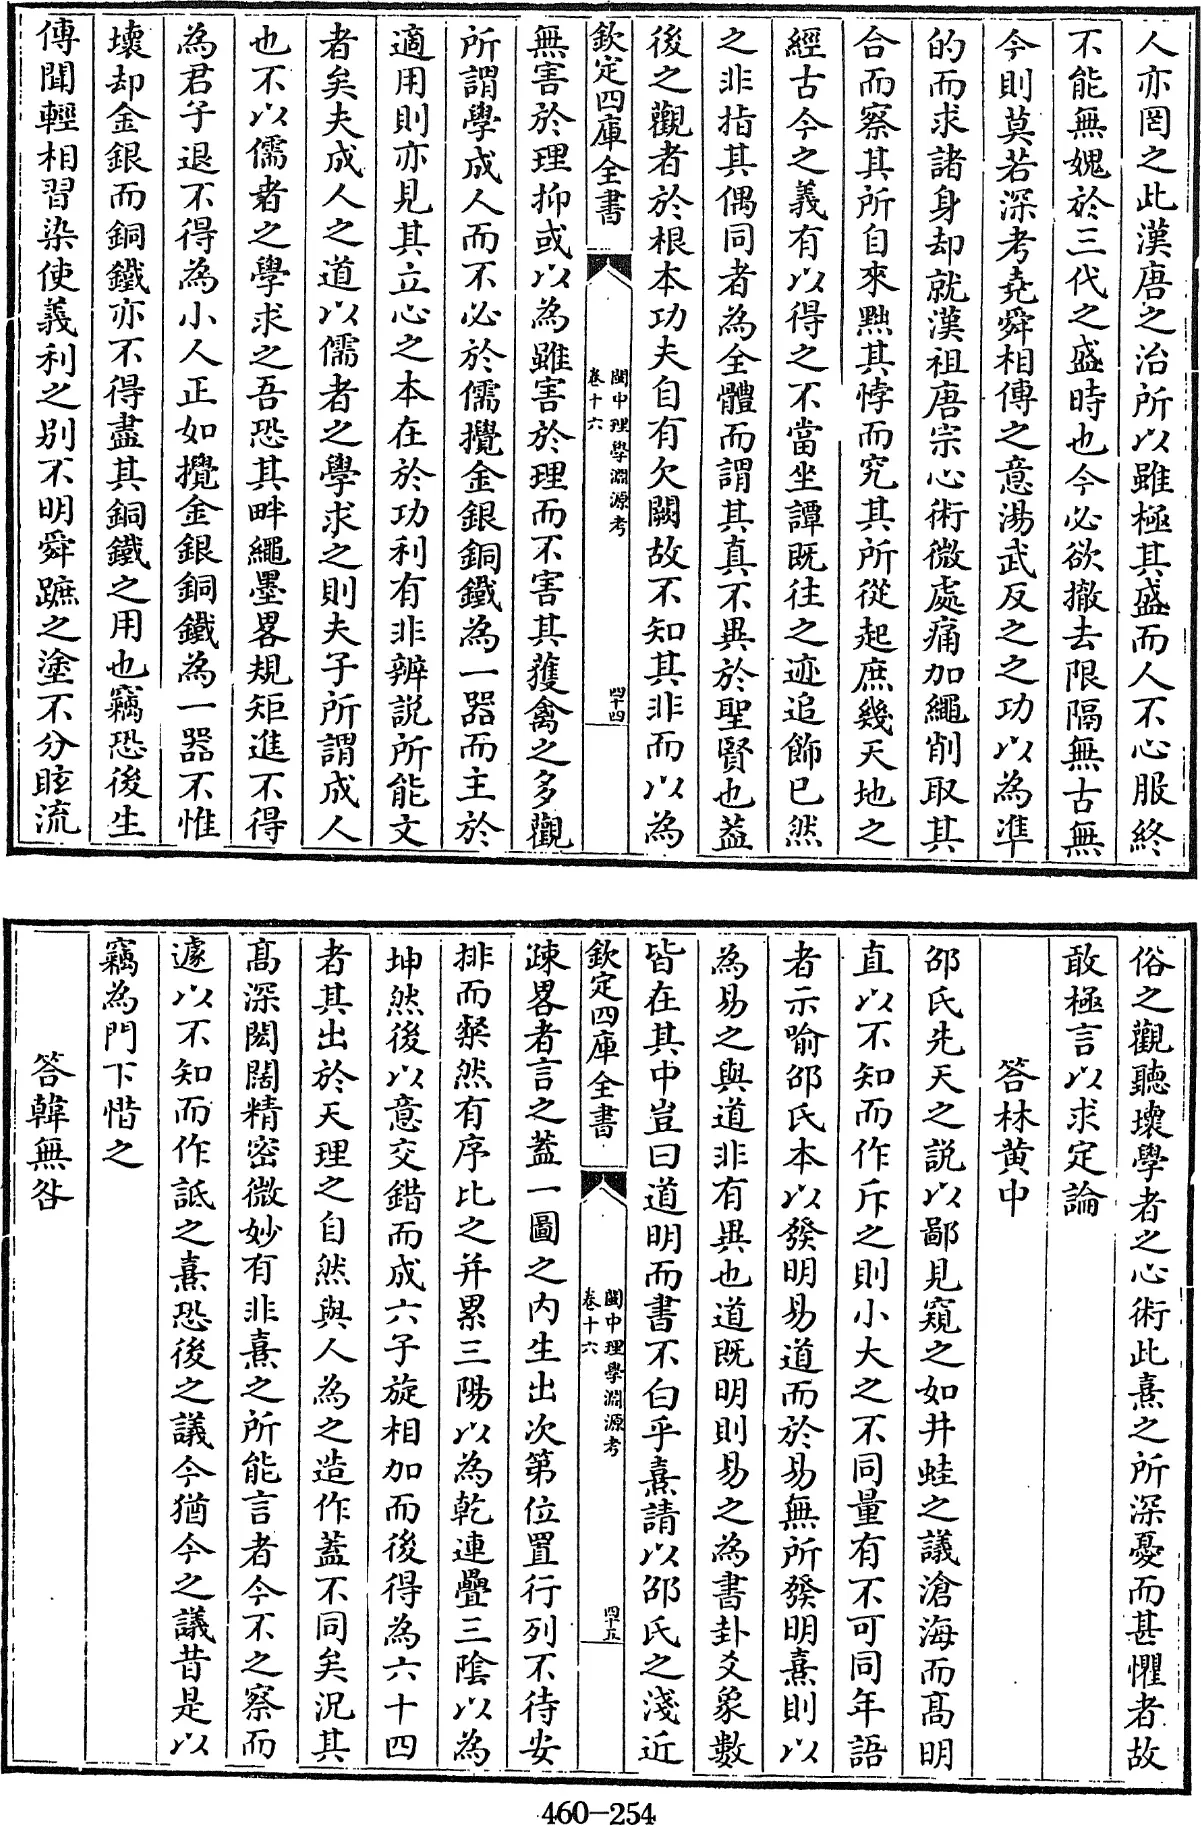 人亦罔之此漢唐之治所以雖極其盛而人不心服終
不能無媿於三代之盛時也今必欲撤去限隔無古無
今則莫若深考堯舜相傳之意湯武反之之功以為準
的而求諸身却就漢祖唐宗心術微處痛加繩削取其
合而察其所自來黜其悖而究其所從起庶幾天地之
經古今之義有以得之不當坐譚既往之迹追飾已然
之非指其偶同者為全體而謂其真不異於聖賢也蓋
後之觀者於根本功夫自有欠闕故不知其非而以為
欽定四庫全書
閩中理學淵源考
卷十六
四十四
無害於理抑或以為雖害於理而不害其獲禽之多觀
所謂學成人而不必於儒攪金銀銅鐵為一器而主於
適用則亦見其立心之本在於功利有非辨説所能文
者矣夫成人之道以儒者之學求之則夫子所謂成人
也不以儒者之學求之吾恐其畔繩墨畧規矩進不得
為君子退不得為小人正如攪金銀銅鐵為一器不惟
壞却金銀而銅鐵亦不得盡其銅鐵之用也竊恐後生
傳聞輕相習染使義利之别不明舜蹠之塗不分眩流
俗之觀聽壞學者之心術此熹之所深憂而甚懼者故
敢極言以求定論
答林黄中
邵氏先天之説以鄙見窺之如井蛙之議滄海而髙明
直以不知而作斥之則小大之不同量有不可同年語
者示喻邵氏本以發明易道而於易無所發明熹則以
為易之與道非有異也道既明則易之為書卦爻象數
皆在其中豈曰道明而書不白乎熹請以邵氏之淺近
欽定四庫全書
閩中理學淵源考
卷十六
四十五
疎畧者言之蓋一圖之内生出次第位置行列不待安
排而粲然有序比之并累三陽以為乾連疊三陰以為
坤然後以意交錯而成六子旋相加而後得為六十四
者其出於天理之自然與人為之造作蓋不同矣況其
髙深閎闊精密微妙有非熹之所能言者今不之察而
遽以不知而作詆之熹恐後之議今猶今之議昔是以
竊為門下惜之
答韓無咎
460-254